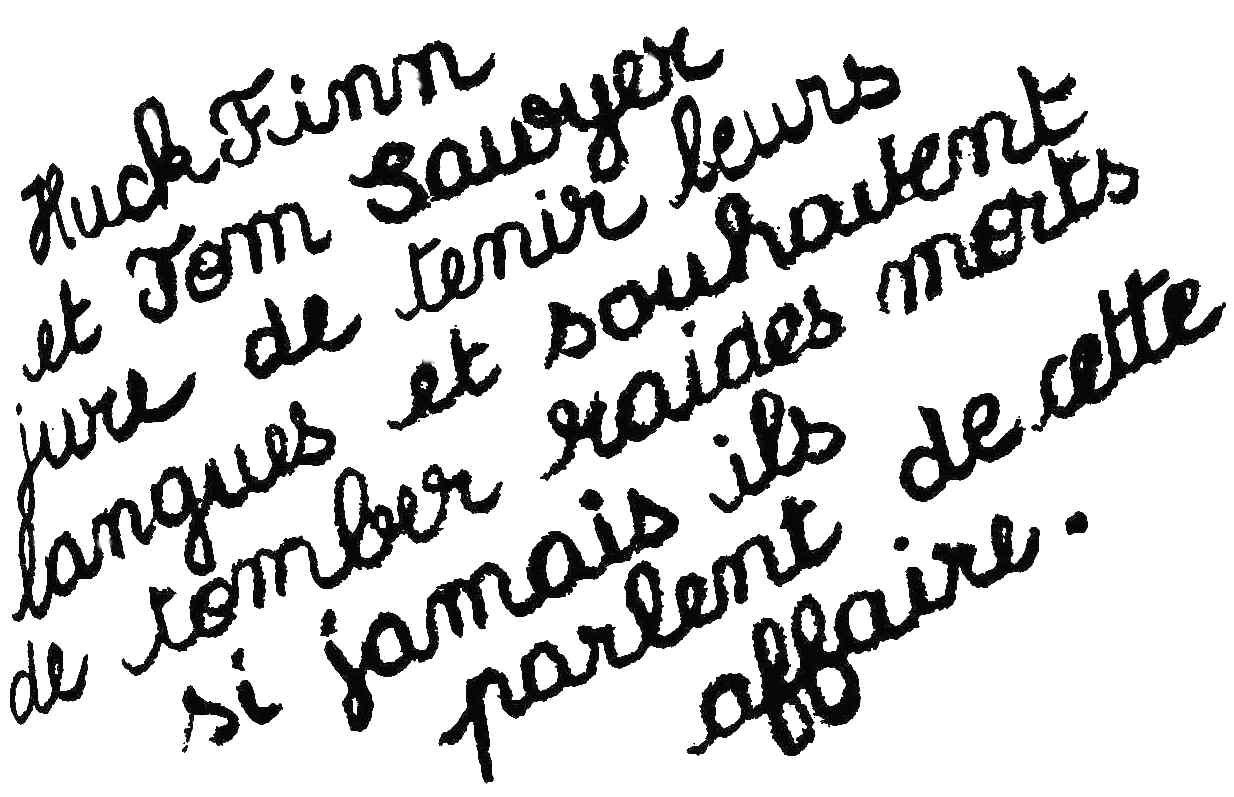 Huck Finn
et Tom Sawyer
jure de tenir leurs
langues et souhaitent
de tomber raides morts
si jamais ils
parlent de cette
affaire.